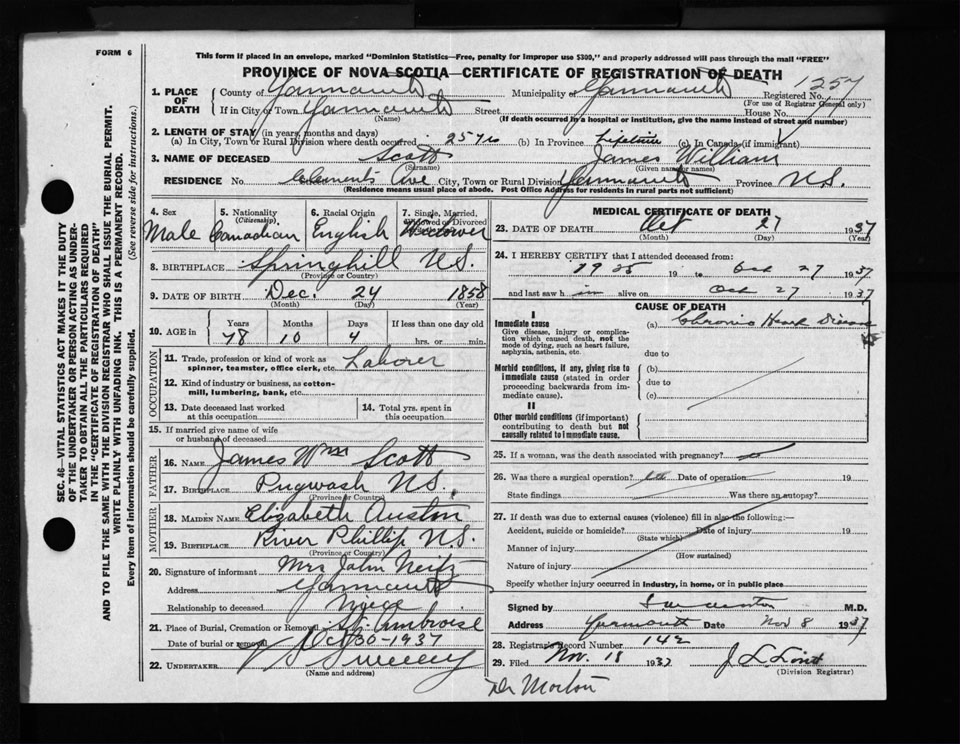 FORM 6
This form if placed in an envelope, marked "Dominion Statistics—Free, penalty for improper use $300," and properly addressed will pass through the mail "FREE"
PROVINCE OF NOVA SCOTIA—CERTIFICATE OF REGISTRATION OF DEATH
1257
1. PLACE OF DEATH County of Yarmouth Municipality of Yarmouth Registered No.
(For use of Registrar General only)
If in City or Town Yarmouth Street House No.
(Name) (If death occurred in a hospital or institution, give name instead of street and number)
2. LENGTH OF STAY (in years, months and days)
(a) In City, Town or Rural Division where death occurred 25 yrs (b) In Province Lifetime (c) In Canada (if immigrant)
3. NAME OF DECEASED Scott James William
(Surname) (Given name or names)
RESIDENCE No. Clements Ave City, Town or Rural Division Yarmouth Province N.S.
(Residence means usual place of abode. Post Office Address for residents in rural parts not sufficient)
4. Sex Male
5. Nationality (Citizenship) Canadian
6. Racial Origin English
7. Single, Married, Widowed or Divorced Widower
8. BIRTHPLACE Springhill N.S.
(Province or Country)
9. DATE OF BIRTH Dec. 24 1858
(Month) (Day) (Year)
10. AGE in Years Months Days If less than one day old
78 10 4 hrs. or min.
OCCUPATION
11. Trade, profession or kind of work as spinner, teamster, office clerk, etc. Laborer
12. Kind of industry or business, as cotton-mill, lumbering, bank, etc.
13. Date deceased last worked at this occupation
14. Total yrs. spent in this occupation
15. If married give name of wife or husband of deceased
FATHER
16. NAME James Wm Scott
17. BIRTHPLACE Pugwash N.S.
(Province or Country)
MOTHER
18. MAIDEN NAME Elizabeth Auston
19. BIRTHPLACE River Phillip N.S.
(Province or Country)
20. Signature of informant Mrs John
Address Yarmouth
Relationship to deceased Niece
21. Place of Burial, Cremation or Removal St. Ambroise
Date of burial or removal Oct 30-1937
22. UNDERTAKER Sweeny
(Name and address)
MEDICAL CERTIFICATE OF DEATH
23. DATE OF DEATH Oct 27 1937
(Month) (Day) (Year)
24. I HEREBY CERTIFY that I attended deceased from:
1935 19 to Oct 27 1937
and last saw him alive on Oct 27 1937
CAUSE OF DEATH
I
Immediate cause (a) Chronic Heart Disease
Give disease, injury or complication which caused death, not the mode of dying, such as heart failure, asphyxia, asthenia, etc.
due to
Morbid conditions, if any, giving rise to immediate cause (stated in order proceeding backwards from immediate cause).
(b)
due to
(c)
II
Other morbid conditions (if important) contributing to death but not causally related to immediate cause.
25. If a woman, was the death associated with pregnancy?
26. Was there a surgical operation? Date of operation 19
State findings Was there an autopsy?
27. If death was due to external causes (violence) fill in also the following:—
Accident, suicide or homicide? Date of injury 19
(State which)
Manner of injury
(How sustained)
Nature of injury
Specify whether injury occurred in industry, in home, or in public place
Signed by M.D.
Address Yarmouth Date Nov 8 1937
28. Registrar's Record Number 142
29. Filed Nov. 18 1937 J L
(Division Registrar)
Dr Morton
SEC. 46—VITAL STATISTICS ACT MAKES IT THE DUTY
OF THE UNDERTAKER OR PERSON ACTING AS UNDER-
TAKER TO OBTAIN ALL THE PARTICULARS REQUIRED
IN THE "CERTIFICATE OF REGISTRATION OF DEATH"
AND TO FILE THE SAME WITH THE DIVISION REGISTRAR WHO SHALL ISSUE THE BURIAL PERMIT.
WRITE PLAINLY WITH UNFADING INK. THIS IS A PERMANENT RECORD.
Every item of information should be carefully supplied. (See reverse side for instructions.)